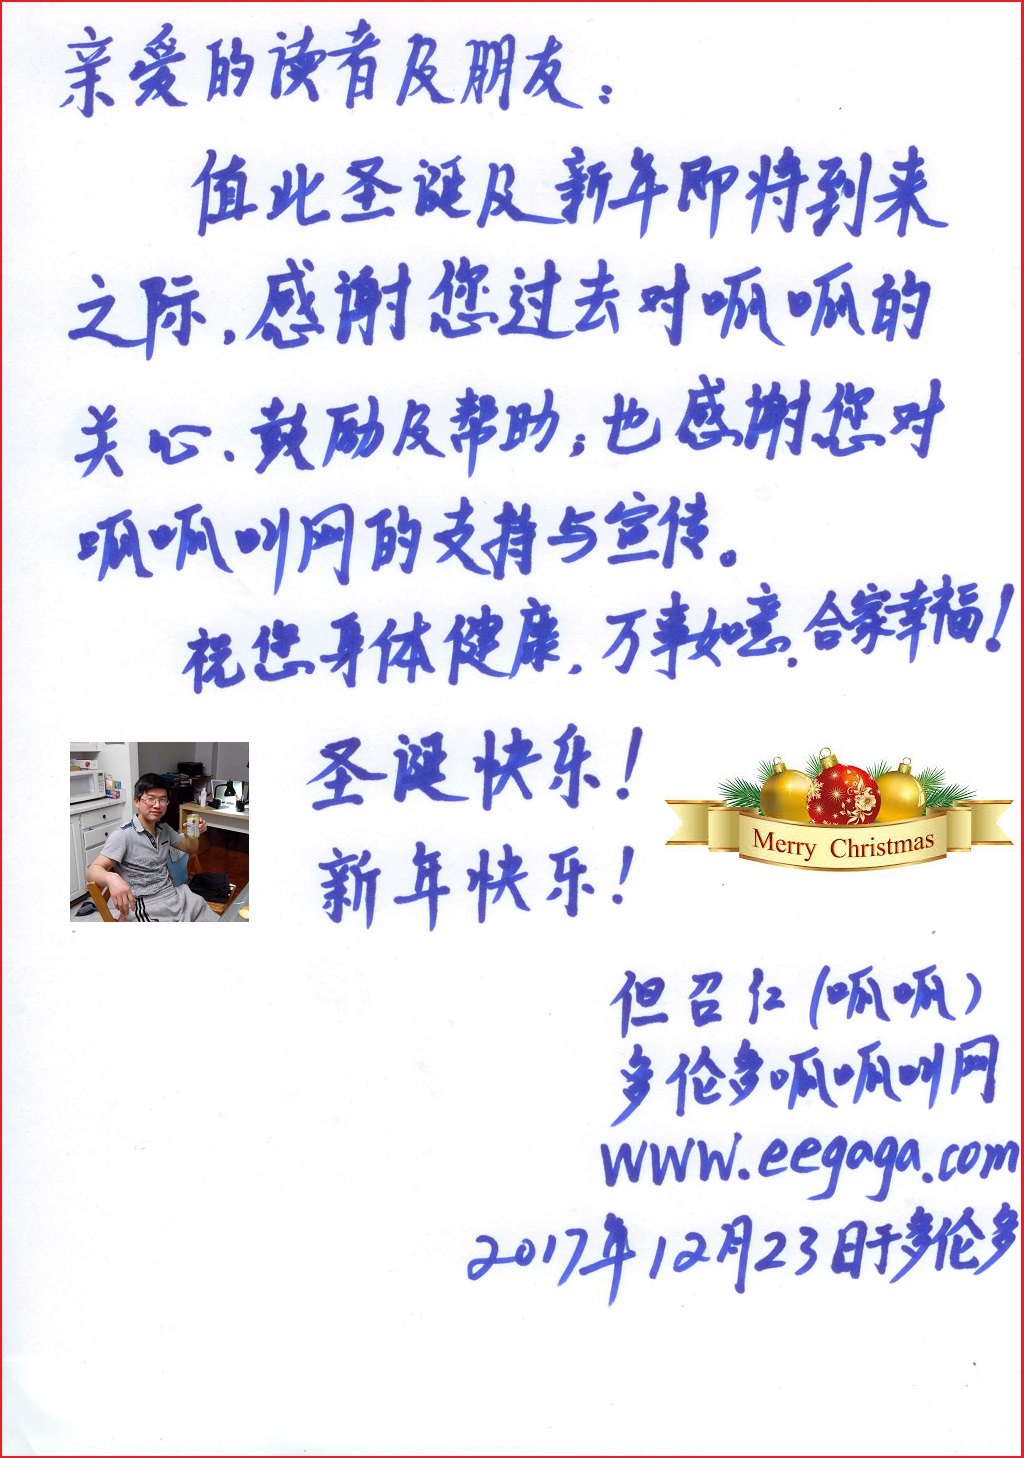 亲爱的读者及朋友：
值此圣诞及新年即将到来
之际，感谢您过去对呱呱的
关心、鼓励及帮助；也感谢您对
呱呱叫网的支持与宣传。
祝您身体健康，万事如意，合家幸福！
圣诞快乐！
Merry Christmas
新年快乐！
但召仁（呱呱）
多伦多呱呱叫网
www.eegaga.com
2017年12月23日于多伦多